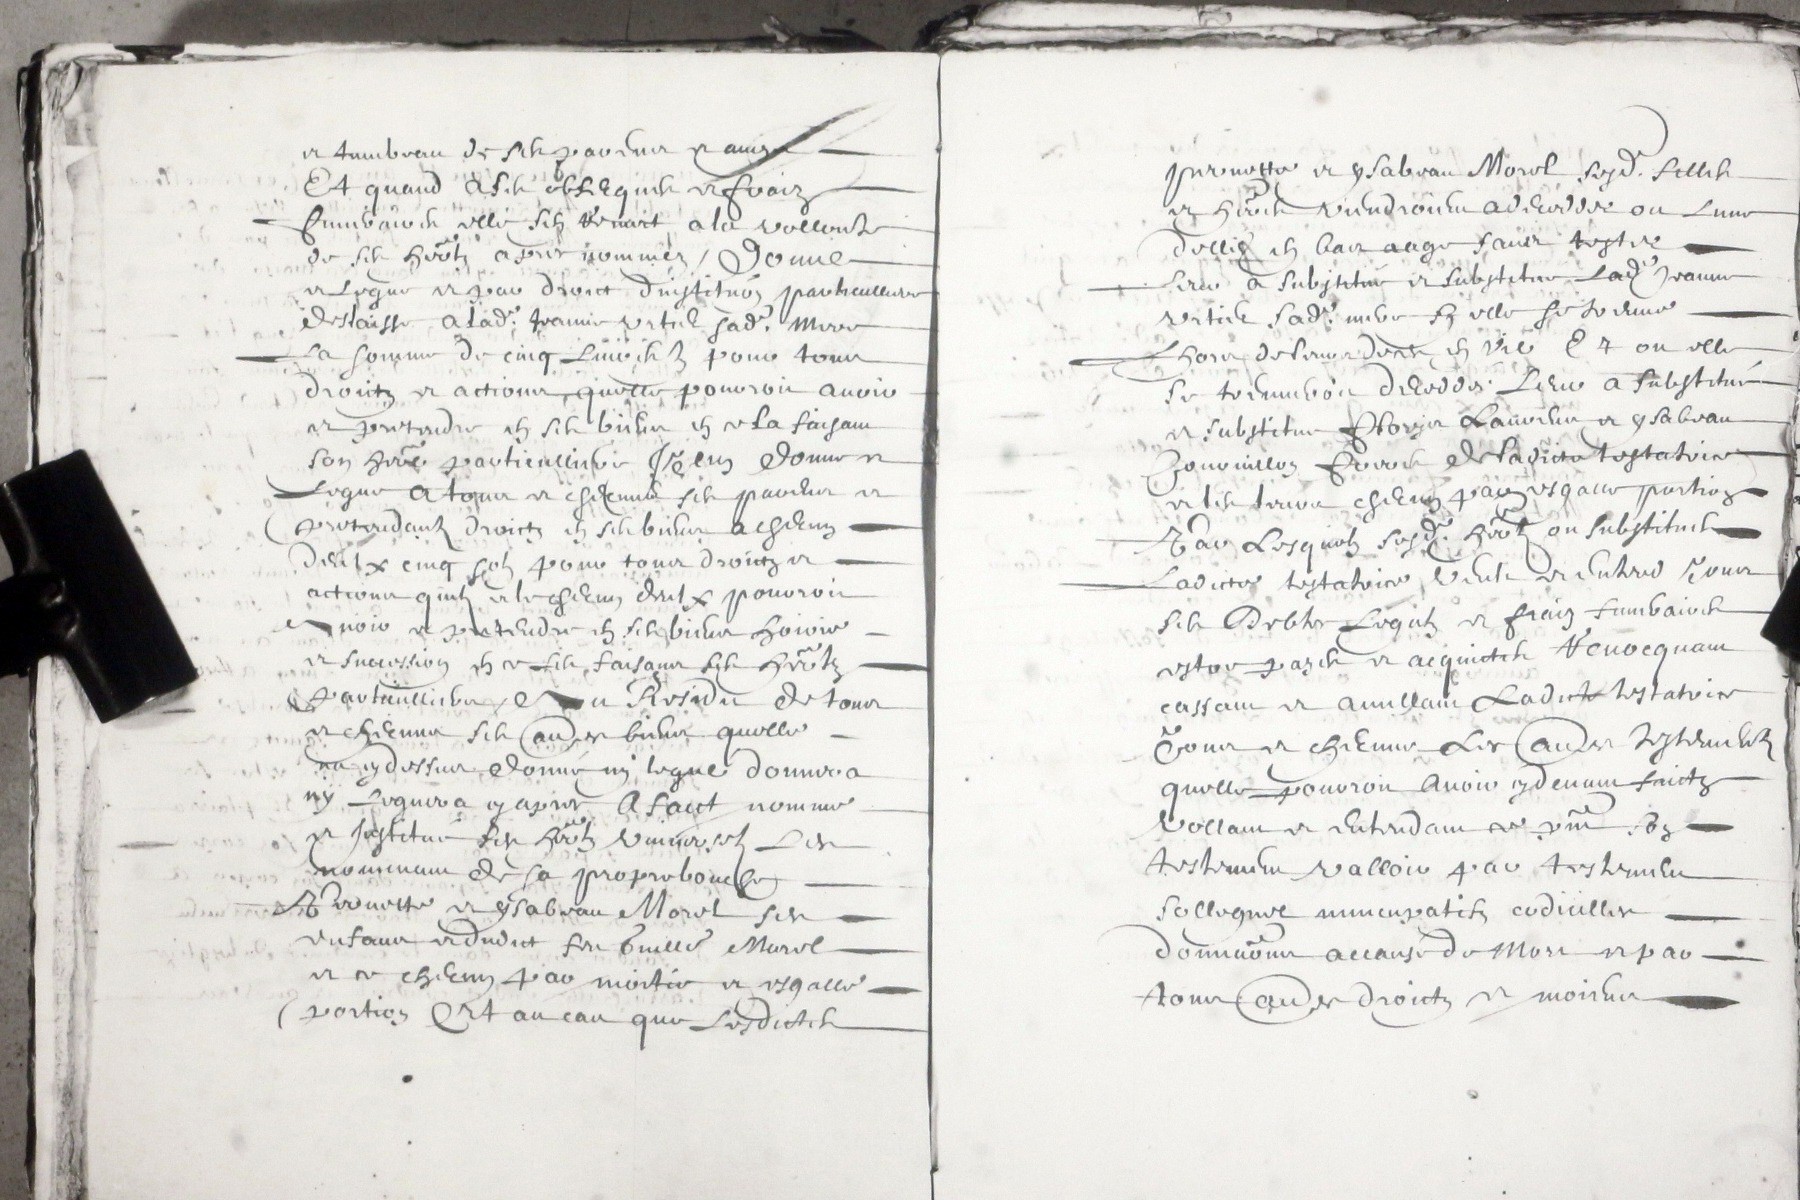 et tumbeau de ses parens et amys
Et quand a ses obseques et fraiz
funeraires elle sen remect a la vollonte
de ses herẽs apres nommes / Donne
et legue et par droict dinstitũon particulliere
delaisse a lad. Jeanne Vitiel sad. mere
La somme de cinq livres tz pour tous
droictz et actions quelle pourroit avoir
et pretendre en ses biens en ce la faisant
son herẽ particulliere Item donne et
legue a tous et chescuns ses parens et
pretendantz droictz en ses biens a chescun
deulx cinq solz pour tous droictz et
actions quilz et le chescun deulx pourroit
avoir et pretendre en ses biens hoirie
et succession en ce les faisant ses herẽs
particulliers / Et au Residu de tous
et chescuns ses autres biens quelle
na cy dessus donne ny legue donnera
ny leguera cy apres A faict nomme
et Institue ses herẽs universelz Les
nommant de sa propre bouche
Pernette et ysabeau Morel ses
enfans et dudict feu Guille Morel
et ce chescun par moitie et esgalle
portion Et au cas que Lesdictes
pernette et ysabeau Morel sesd. filles
et herẽs viendroient a deceder ou lune
delles en bas aage sans tester
Leur a substitue et substitue Lad. Jeanne
Vitiel sad. mere sy elle se treuve
Lhors de leur deces en vie Et ou elle
se treuveroit decedee Leur a substitué
et substitue Laurens et ysabeau
freres de ladicte testatrice
et les leurs chescun par esgalle portion
Par Lesquelz sesd. herẽs ou substitues
Ladicte testatrice veult et entend tous
ses debtes legatz et fraiz funeraires
estre payes et acquictes Revocquant
cassant et anullant Ladicte testatrice
Tous et chescuns Les autres testementz
quelle pourroit avoir cy devant faictz
Vollant et entendant ce pñt son
testement valloir par testement
sollegnel nuncupatif codicilles
donnaõns a cause de mort et par
tous autres droictz et moiens